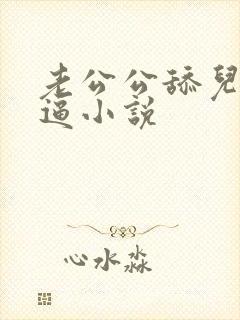 老公公舔兒
逼小說
心水淼